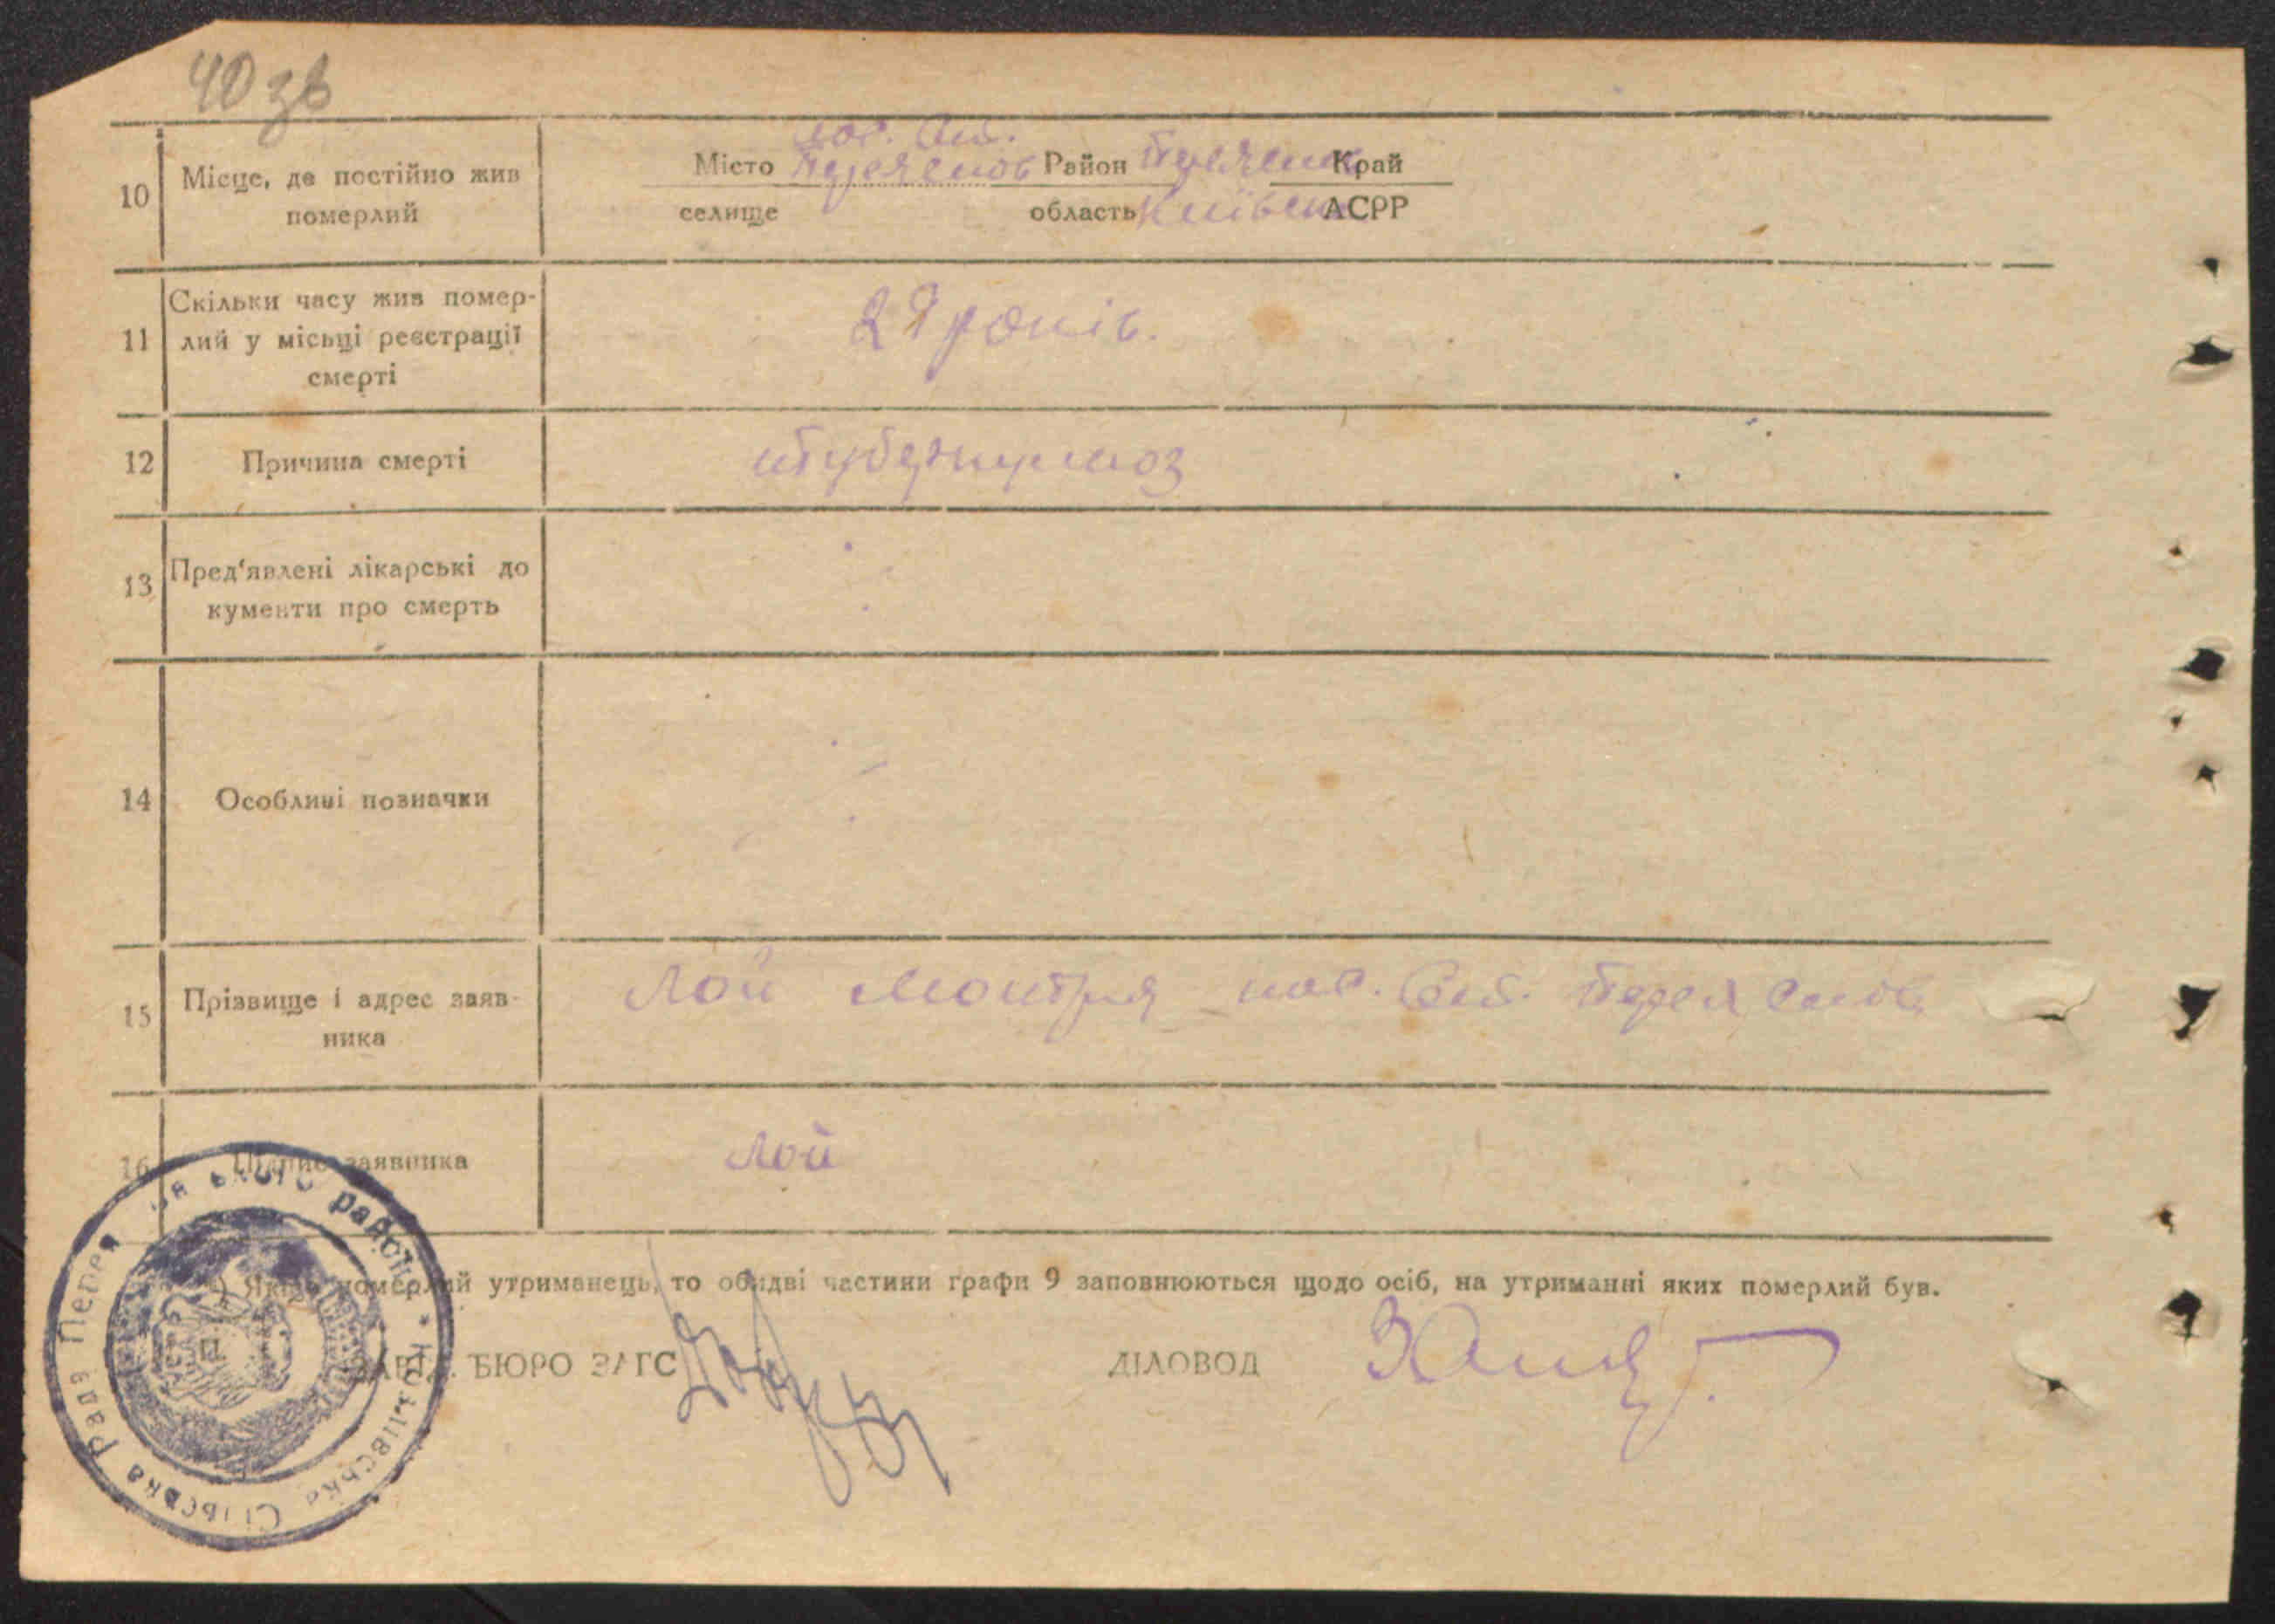 40 зв
10 Місце, де постійно жив померлий
Місто Район Край
селище область Київськ АСРР
11 Скільки часу жив помер-
лий у місьці реєстрації
смерті
29 років.
12 Причина смерті туберкульоз
13 Пред'явлені лікарські до
кументи про смерть
14 Особливі позначки
15 Прізвище і адрес заяв-
ника
Лой
16 Підпис заявника Лой
*) Якщо померлий утриманець, то обидві частини графи 9 заповнюються щодо осіб, на утриманні яких померлий був.
ЗАВІД. БЮРО ЗАГС ДІЛОВОД
Козлівська Сільська Рада Перея ського району